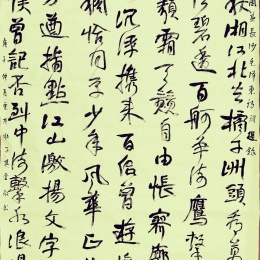 秋湘江北去橘子洲頭看萬
江碧透百舸爭流鷹擊
類霜天競自由悵寥廓
沉浮攜來百侶曾遊
恰同学少年風華正
方遒指點江山激揚文字
侯曾記否到中流擊水浪遏